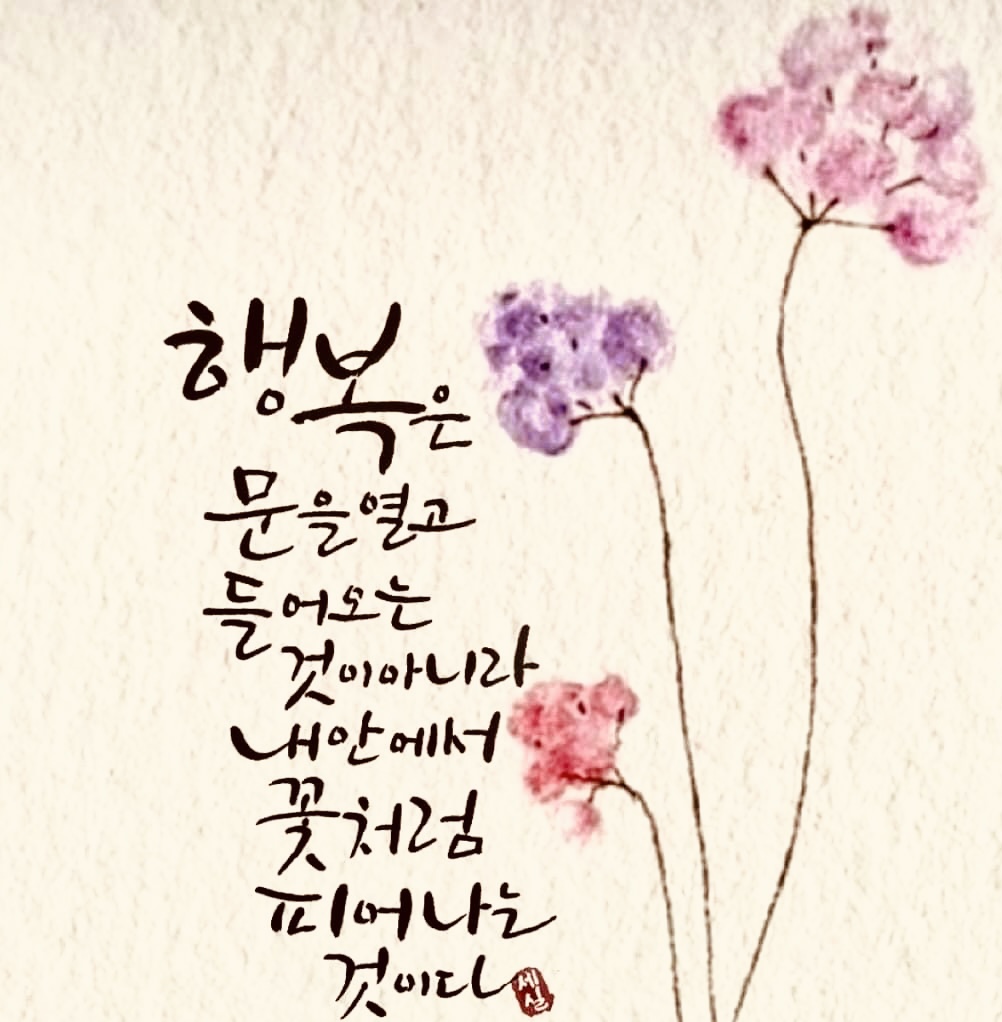 행복은
문을열고
들어오는
것이아니라
내안에서
꽃처럼
피어나는
것이다